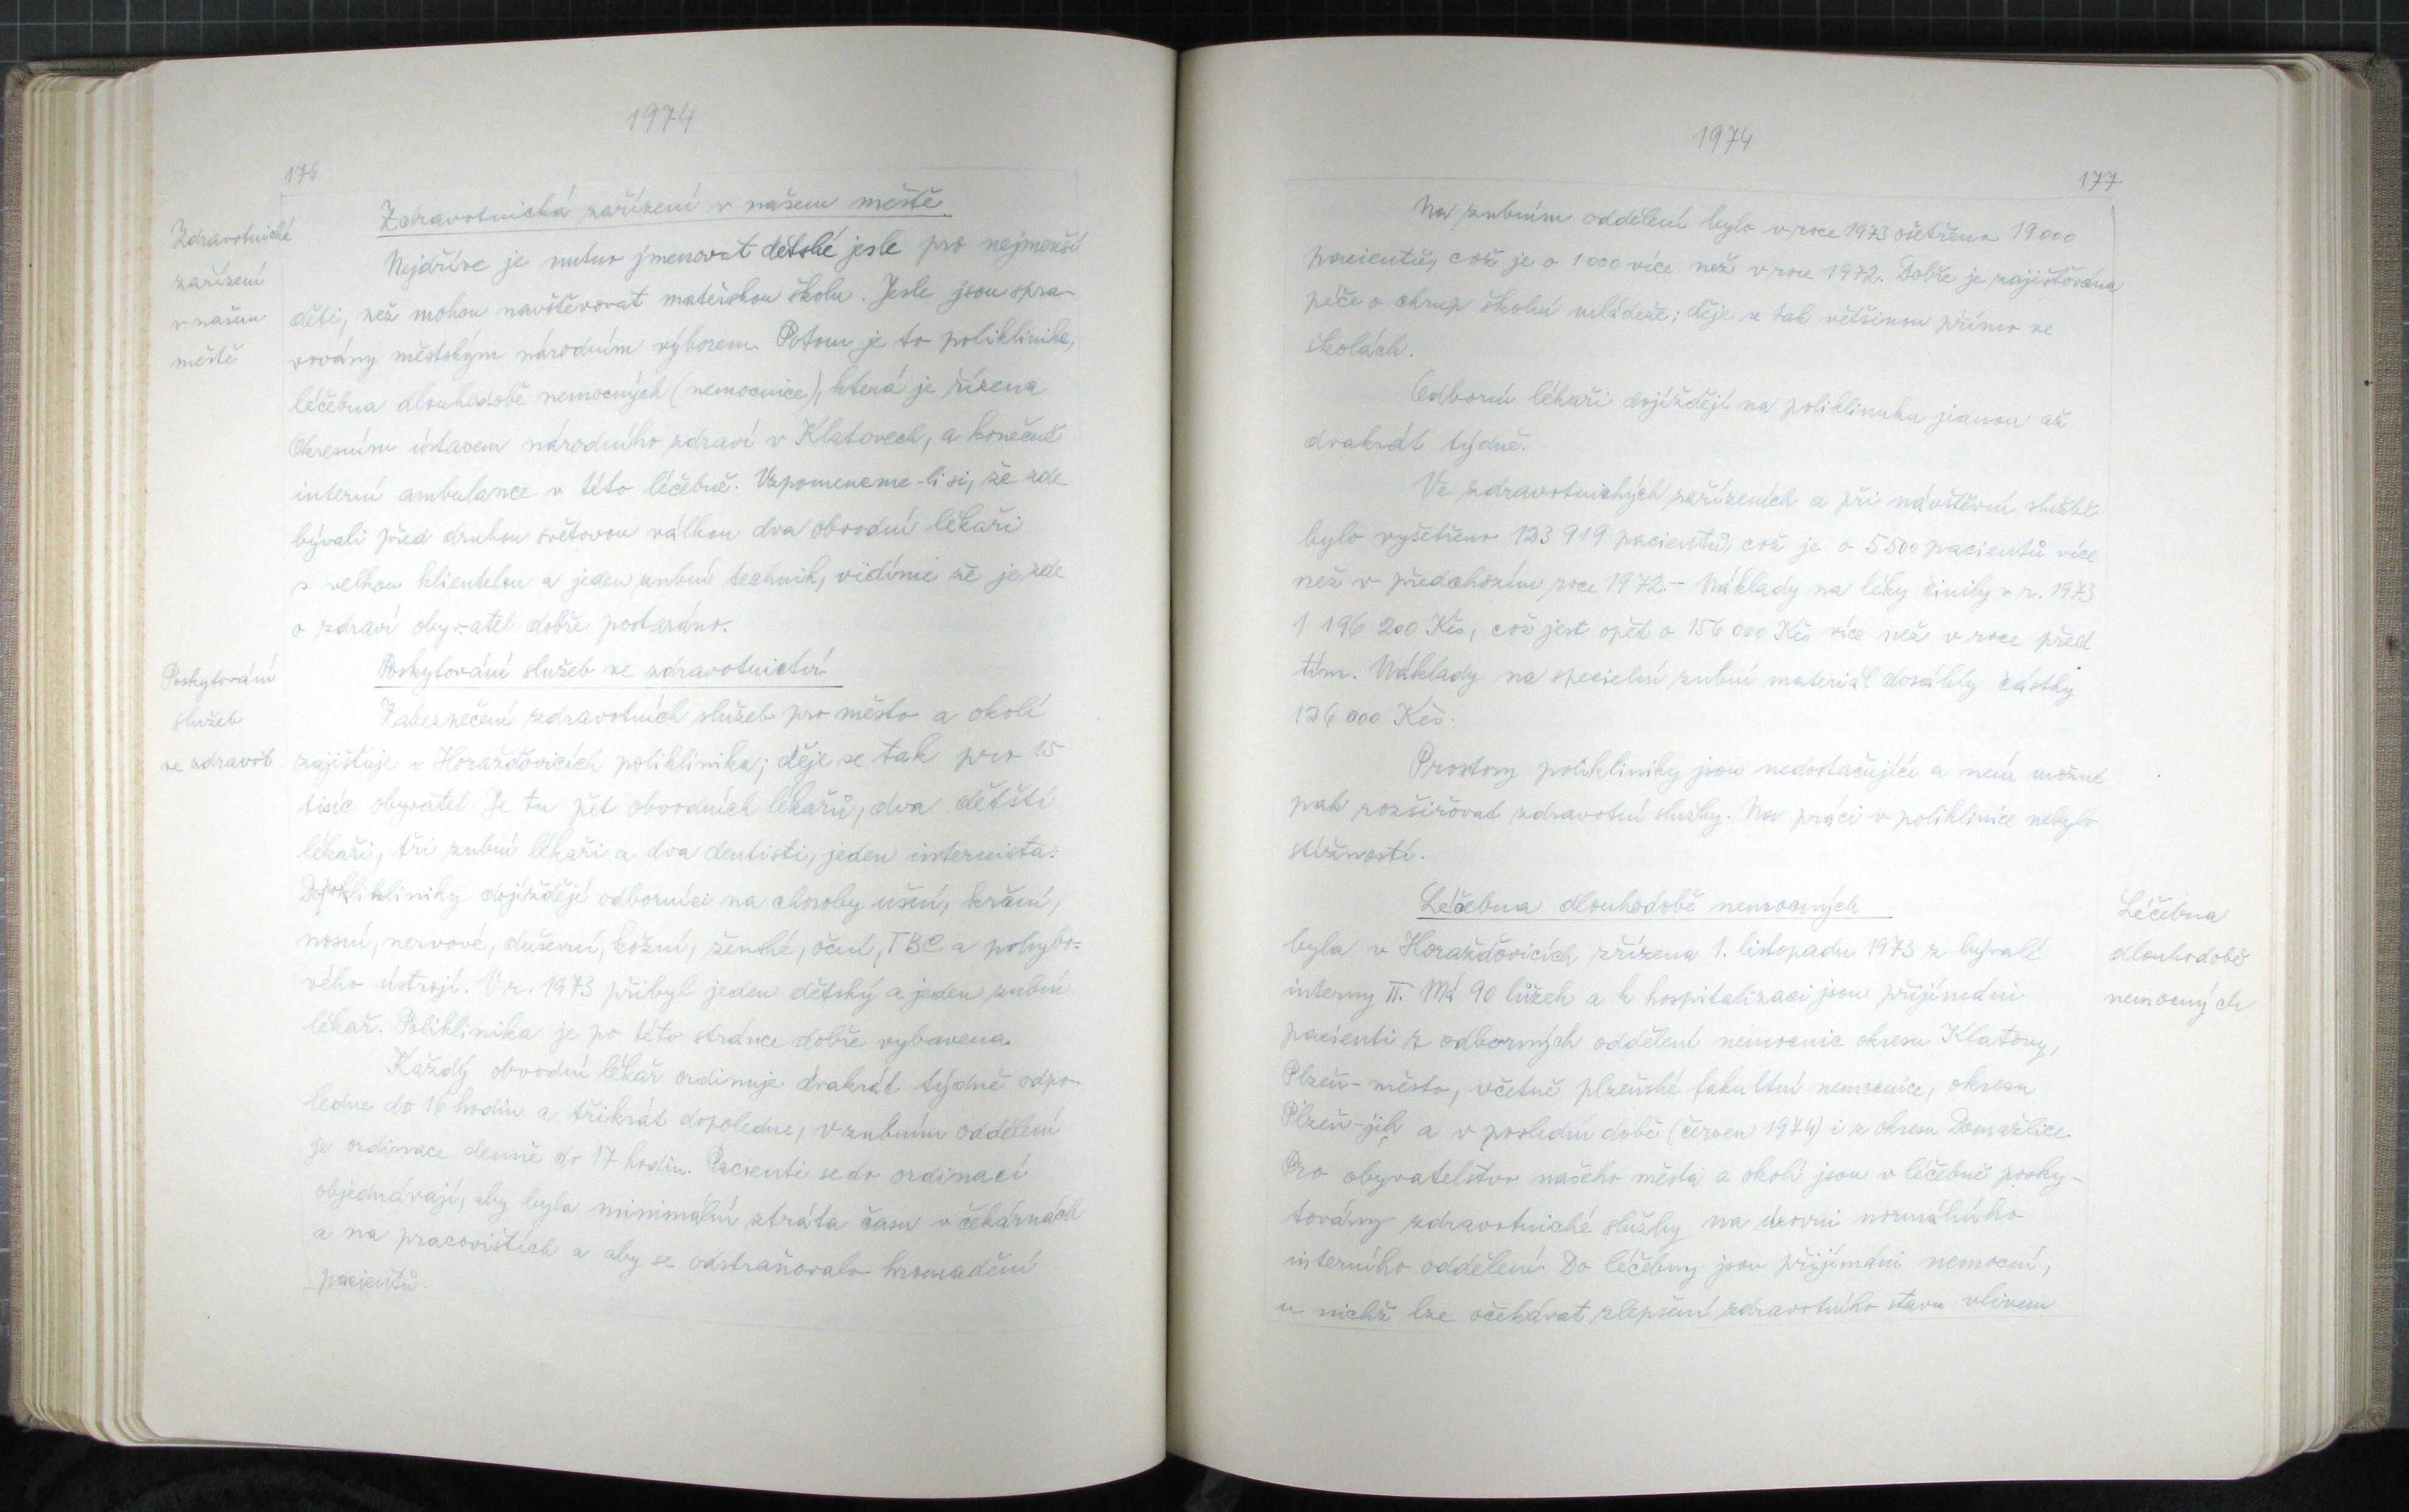 1974
176
Zdravotnické
zařízení
v našem
městě
Zdravotnická zařízení v našem městě
Nejdříve je nutno jmenovat dětské jesle pro nejmenší
děti, než mohou navštěvovat mateřskou školu. Jesle jsou spra-
vovány městským národním výborem. Potom je to poliklinika,
léčebna dlouhodobě nemocných (nemocnice), která je řízena
Okresním ústavem národního zdraví v Klatovech, a konečně
interní ambulance v této léčebně. Vzpomeneme-li si, že zde
bývali před druhou světovou válkou dva obvodní lékaři
s velkou klientelou a jeden zubní technik, vidíme že je zde
o zdraví obyvatel dobře postaráno.
Poskytování
služeb
ve zdravot.
Poskytování služeb ve zdravotnictví
Zabezpečení zdravotních služeb pro město a okolí
zajišťuje v Horažďovicích poliklinika; děje se tak pro 15
tisíc obyvatel. Je tu pět obvodních lékařů, dva dětští
lékaři, tři zubní lékaři a dva dentisti, jeden internista.
Do polikliniky dojíždějí odborníci na choroby ušní, krční,
nosní, nervové, duševní, kožní, ženské, oční, TBC a pohybo-
vého ústrojí. V r. 1973 přibyl jeden dětský a jeden zubní
lékař. Poliklinika je po této stránce dobře vybavena.
Každý obvodní lékař ordinuje dvakrát týdně odpo-
ledne do 16 hodin a třikrát dopoledne, v zubním oddělení
je ordinace denně do 17 hodin. Pacienti se do ordinací
objednávají, aby byla minimální ztráta času v čekárnách
a na pracovištích a aby se odstraňovalo hromadění
pacientů.
1974
177
Na zubním oddělení bylo v roce 1973 ošetřeno 19 000
pacientů, což je o 1 000 více než v roce 1972. Dobře je zajišťována
péče o chrup školní mládeže; děje se tak většinou přímo ve
školách.
Odborní lékaři dojíždějí na polikliniku jednou až
dvakrát týdně.
Ve zdravotnických zařízeních a při návštěvní službě
bylo vyšetřeno 123 919 pacientů, což je o 5 500 pacientů více
než v předchozím roce 1972. - Náklady na léky činily v r. 1973
1 196 200 Kčs, což jest opět o 156 000 Kčs více než v roce před
tím. Náklady na specielní zubní materiál dosáhly částky
126 000 Kčs.
Prostory polikliniky jsou nedostačující a není možné
pak rozšiřovat zdravotní služby. Na práci v poliklinice nebylo
stížností.
Léčebna dlouhodobě nemocných
Léčebna
dlouhodobě
nemocných
byla v Horažďovicích zřízena 1. listopadu 1973 z bývalé
interny II. Má 90 lůžek a k hospitalizaci jsou přijímáni
pacienti z odborných oddělení nemocnic okresu Klatovy,
Plzeň-město, včetně plzeňské fakultní nemocnice, okresu
Plzeň-jih a v poslední době (červen 1974) i z okresu Domažlice.
Pro obyvatelstvo našeho města a okolí jsou v léčebně posky-
továny zdravotnické služby na úrovni normálního
interního oddělení. Do léčebny jsou přijímáni nemocní,
u nichž lze očekávat zlepšení zdravotního stavu vlivem